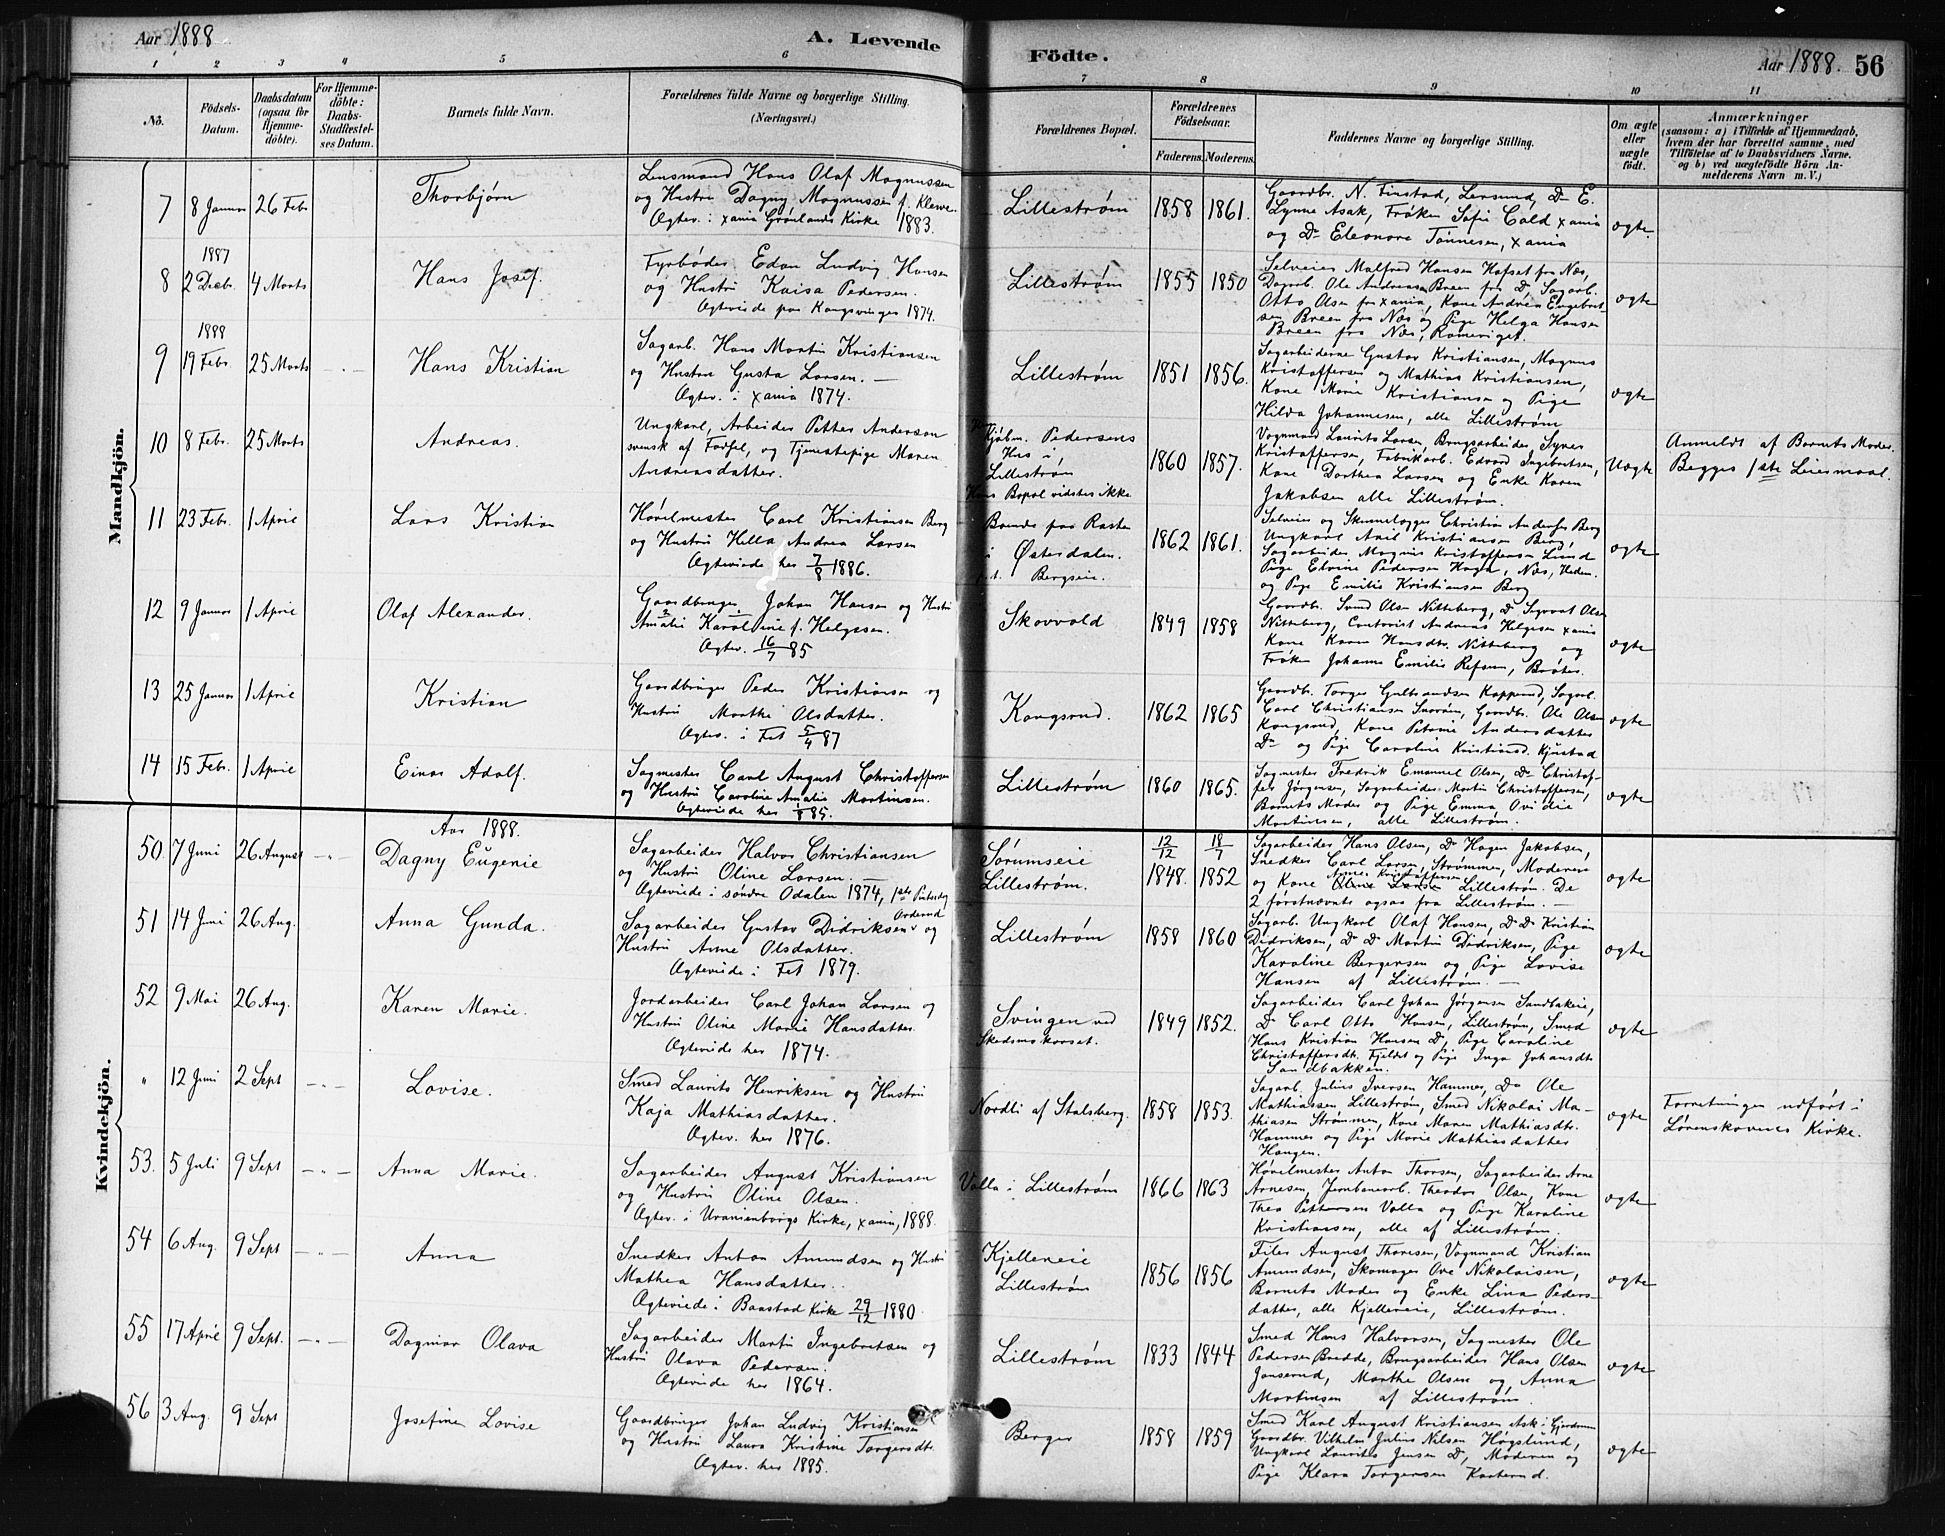 Aar 1888
A. Levende
Födte.
Aar 1888. 56
1 2 3 4 5 6 7 8 9 10 11
No.
Födsels-
Datum.
Daabsdatum
(ogsaa for
Hjemme-
döbte).
For Hjemme-
döbte:
Daabs-
Stadfæstel-
ses Datum.
Barnets fulde Navn.
Forældrenes fulde Navne og borgerlige Stilling.
(Næringsvei.)
Forældrenes Bopæl.
Forældrenes
Födselsaar.
Faderens. Moderens.
Faddernes Navne og borgerlige Stilling.
Om ægte
eller
uægte
födt.
Anmærkninger
(saasom: a) i Tilfælde af Hjemmedaab,
hvem der har forrettet samme, med
Tilföielse af to Daabsvidners Navne.
og b) ved uægtefödte Börn An-
melderens Navn m. V.)
Mandkjön.
7 8 Januar 26 Febr Thorbjørn
Lensmand Hans Olaf Magnussen
og Hustru Dagny Magnussen f. Klewe
Ægtev. i Xania Grønlands Kirke 1883.
Lillestrøm 1858 1861.
Gaardbr. N. Finstad, Lersund, Do E.
Lynne Asak, Frøken Sofie Cold Xania
og Do Eleonore Tønnesen, Xania
ægte.
1887
8 2 Decbr. 4 Marts Hans Josef.
Fyrbøder Edon Ludvig Hansen
og Hustru Kaisa Pedersen.
Ægteviede paa Kongsvinger 1874.
Lillestrøm 1855 1850
Selveier Malfred Hansen Hofset fra Næs,
Dagarb. Ole Andreasen Breen fra Do Sagarb.
Otto Olsen fra Xania, Kone Andrea Engebret-
sen Breen fra Næs og Pige Helga Hansen
Breen fra Næs, Romeriget.
ægte
1888
9 19 Febr. 25 Marts Hans Kristian
Sagarb. Hans Martin Kristiansen
og Hustru Gusta Larsen. —
Ægtev. i Xania 1874.
Lillestrøm 1851 1856.
Sagarbeiderne Gustav Kristiansen, Magnus
Kristoffersen og Mathias Kristiansen,
Kone Marie Kristiansen og Pige
Hilda Johannesen, alle Lillestrøm
ægte
10 8 Febr. 25 Marts Andreas.
Ungkarl, Arbeider Petter Anderson
svensk af Fødsel, og Tjenestepige Maren
Andreasdatter.
Kjøbm. Pedersens
Hus i,
Lillestrøm
Hans Bopæl vidstes ikke
1860 1857.
Vognmand Laurits Larsen, Brugsarbeider Syver
Kristoffersen, Fabrikarb. Edvard Ingebretsen,
Kone Dorthea Larsen og Enke Karen
Jakobsen alle Lillestrøm.
Uægte
Anmeldt af Barnets Moder.
Begges 1ste Leiermaal.
11 23 Febr. 1 April Lars Kristian
Høvelmester Carl Kristiansen Berg
og Hustru Hella Andrea Larsen
Ægteviede her 7/8 1886.
Boende paa Rasta
i Østerdalen.
Bergseie.
1862 1861.
Selveier og Skomager Christian Andersen Berg
Ungkarl Anil Kristiansen Berg,
Sagarbeider Magnus Kristoffersen Lund
Pige Elvine Pedersen Haga, Næs, Hedem.
og Pige Emilie Kristiansen Berg
ægte
12 9 Januar 1 April Olaf Alexander.
Gaardbruger Johan Hansen og Hustru
Amalie Karoline f. Helgesen.
Ægtev. 16/7 85
Skovvold 1849 1858
Gaardbr. Svend Olsen Nitteberg, Do Sigvart Olsen
Nitteberg, Contorist Andreas Helgesen Xania
Kone Karen Hansdtr. Nitteberg og
Frøken Johanne Emilie Refsum, Braaten.
ægte
13 25 Januar 1 April Kristian
Gaardbruger Peder Kristiansen og
Hustru Marthe Olsdatter.
Ægtev. i Fet 5/4 87
Kongsrud. 1862 1865
Gaardbr. Torger Gulbrandsen Kopperud, Sagarb.
Carl Christiansen Snarøen, Gaardbr. Ole Olsen
Kongsrud, Kone Petrine Andersdatter
Do og Pige Caroline Kristiansd. Kjustad
ægte
14 15 Febr. 1 April Einar Adolf.
Sagmester Carl August Christoffersen
og Hustru Caroline Amalie Martinsen.
Ægteviede her 1/8 85.
Lillestrøm 1860 1865.
Sagmester Fredrik Emanuel Olsen, Do Christof-
fer Jørgensen, Sagarbeider Martin Christoffersen,
Barnets Moder og Pige Emma Ovidie
Martinsen, alle Lillestrøm.
ægte
Kvindekjön.
Aar 1888.
50 7 Juni 26 August Dagny Eugenie
Sagarbeider Halvor Christiansen
og Hustru Oline Larsen. —
Ægteviede i søndre Odalen 1874, 1ste Pintsedag
Sørumseie
Lillestrøm.
12/12 1848. 18/7 1852
Sagarbeider Hans Olsen, Do Hagen Jakobsen,
Snedker Carl Larsen, Strømmen, Moderen
og Kone Anne Kristoffersen Lillestrøm. De
2 førstnævnte ogsaa fra Lillestrøm. —
ægte
51 14 Juni 26 Aug. Anna Gunda.
Sagarbeider Gustav Didriksen Orderud og
Hustru Anne Olsdatter.
Ægteviede i Fet 1879.
Lillestrøm 1858 1860
Sagarb. Ungkarl Olaf Hansen, Do Do Kristian
Didriksen, Do Do Martin Didriksen, Pige
Karoline Bergersen og Pige Lovise
Hansen af Lillestrøm. —
ægte
52 9 Mai 26 Aug. Karen Marie.
Jordarbeider Carl Johan Larsen og
Hustru Oline Marie Hansdatter
Ægteviede her 1874.
Svingen ved
Skedsmokorset.
1849 1852.
Sagarbeider Carl Johan Jørgensen Sandbakeie,
Do Carl Otto Hansen, Lillestrøm, Smed
Hans Kristian Hansen Do, Pige Caroline
Christoffersdt. Fjeldet og Pige Inga Johansdt.
Sandbakken.
ægte
" 12 Juni 2 Sept Lovise.
Smed Laurits Henriksen og Hustru
Kaja Mathiasdatter.
Ægtev. her 1876.
Nordli af Stalsberg. 1858 1853.
Sagarb. Julius Iversen Hammer, Do Ole
Mathiassen Lillestrøm, Smed Nikolai Ma-
thiasen Strømmen, Kone Maren Mathiasdtr.
Hammer og Pige Marie Mathiasdatter
Haugen.
ægte
Forretningen udført i
Lørenskovens Kirke.
53. 5 Juli 9 Sept Anna Marie.
Sagarbeider August Kristiansen
og Hustru Oline Olsen.
Ægtev. i Uranienborgs Kirke, Xania, 1888.
Volla i Lillestrøm 1866 1863
Høvelmester Anton Thorsen, Sagarbeider Arne
Arnesen, Jernbanearb. Theodor Olsen, Kone
Thea Pettersen Volla og Pige Karoline
Kristiansen, alle af Lillestrøm
ægte
54 6 Aug. 9 Sept Anna
Snedker Anton Amundsen og Hustru
Mathea Hansdatter.
Ægteviede i Baastad Kirke 29/12 1880.
Kjellereie
Lillestrøm
1856 1856
Filer August Thoresen, Vognmand Kristian
Amundsen, Skomager Ove Nikolaisen,
Barnets Moder og Enke Lina Peders-
datter, alle Kjellereie, Lillestrøm.
ægte
55 17 April 9 Sept. Dagmar Olava
Sagarbeider Martin Ingebretsen og
Hustru Olava Pedersen.
Ægteviede her 1864.
Lillestrøm 1833 1844
Smed Hans Halvorsen, Sagmester Ole
Pedersen Bredde, Brugsarbeider Hans Olsen
Jonsrud, Marthe Olsen og Anna
Martinsen af Lillestrøm.
ægte
56 3 Aug. 9 Sept Josefine Lovise
Gaardbruger Johan Ludvig Kristiansen
og Hustru Laura Kristine Torgersdt.
Ægtev. her 1885.
Berger 1858 1859
Smed Karl August Kristiansen Ask i Gjerdrum
Gaardbr. Vilhelm Julius Nilsen Høgslund,
Ungkarl Laurits Jensen Do, Moderen og
Pige Klara Torgersen Karterud.
ægte